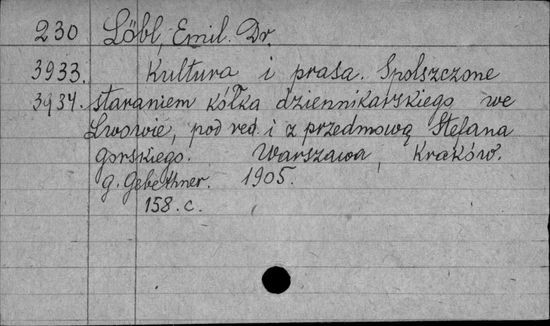 230 Löbl, Emil. Dr.
3933. Kultura i prasa. Spolszczone
3934. staraniem kółka dziennikarskiego we
Lwowie, pod red. i z przedmową Stefana
Gorskiego. Warszawa, Kraków.
g. Gebethner. 1905.
158. c.